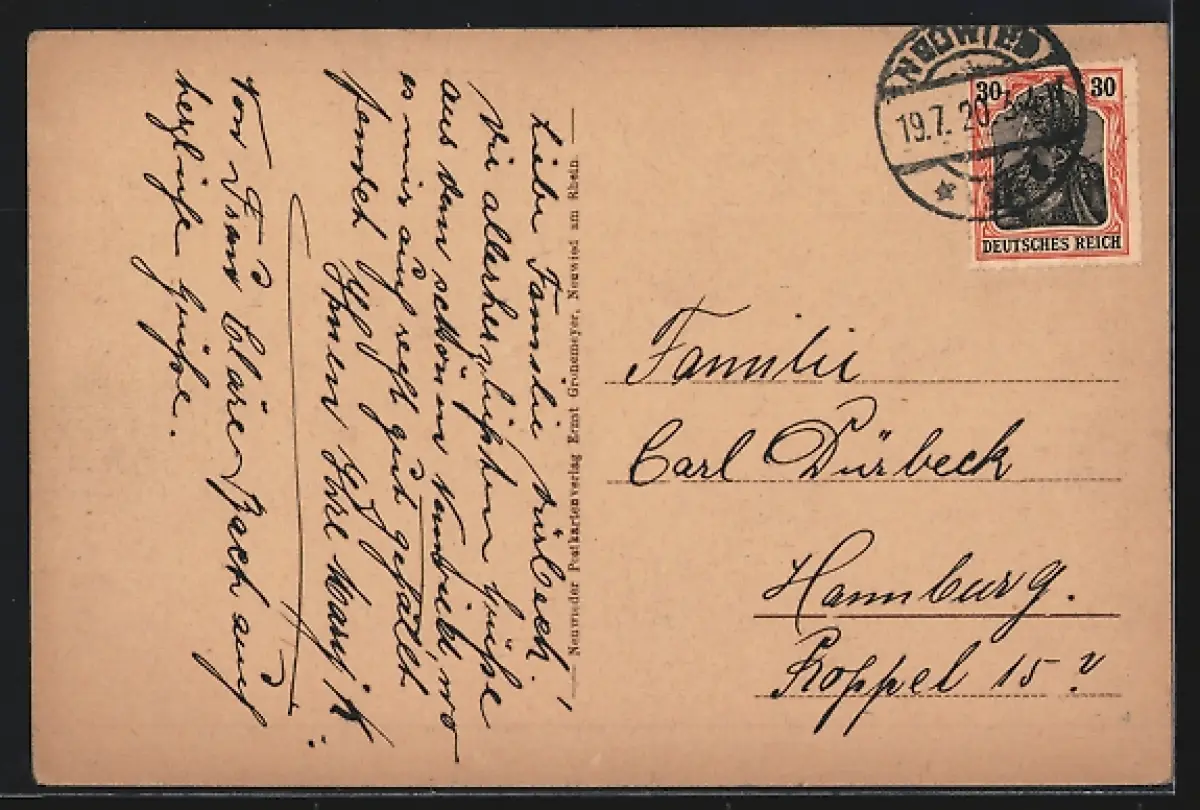 Liebe Familie Dürbeck!
Die allerherzlichsten Grüße
aus dem schönen Neuwied, wo
es mir auch recht gut gefällt
sendet
Ihnen Ihre
Von Frau Cläre Bach auch
herzliche Grüße.
Neuwieder Postkartenverlag Ernst Gronemeyer, Neuwied am Rhein.
NEUWIED
19.7.20.
30 30
DEUTSCHES REICH
Familie
Carl Dürbeck
Hamburg.
Koppel 15